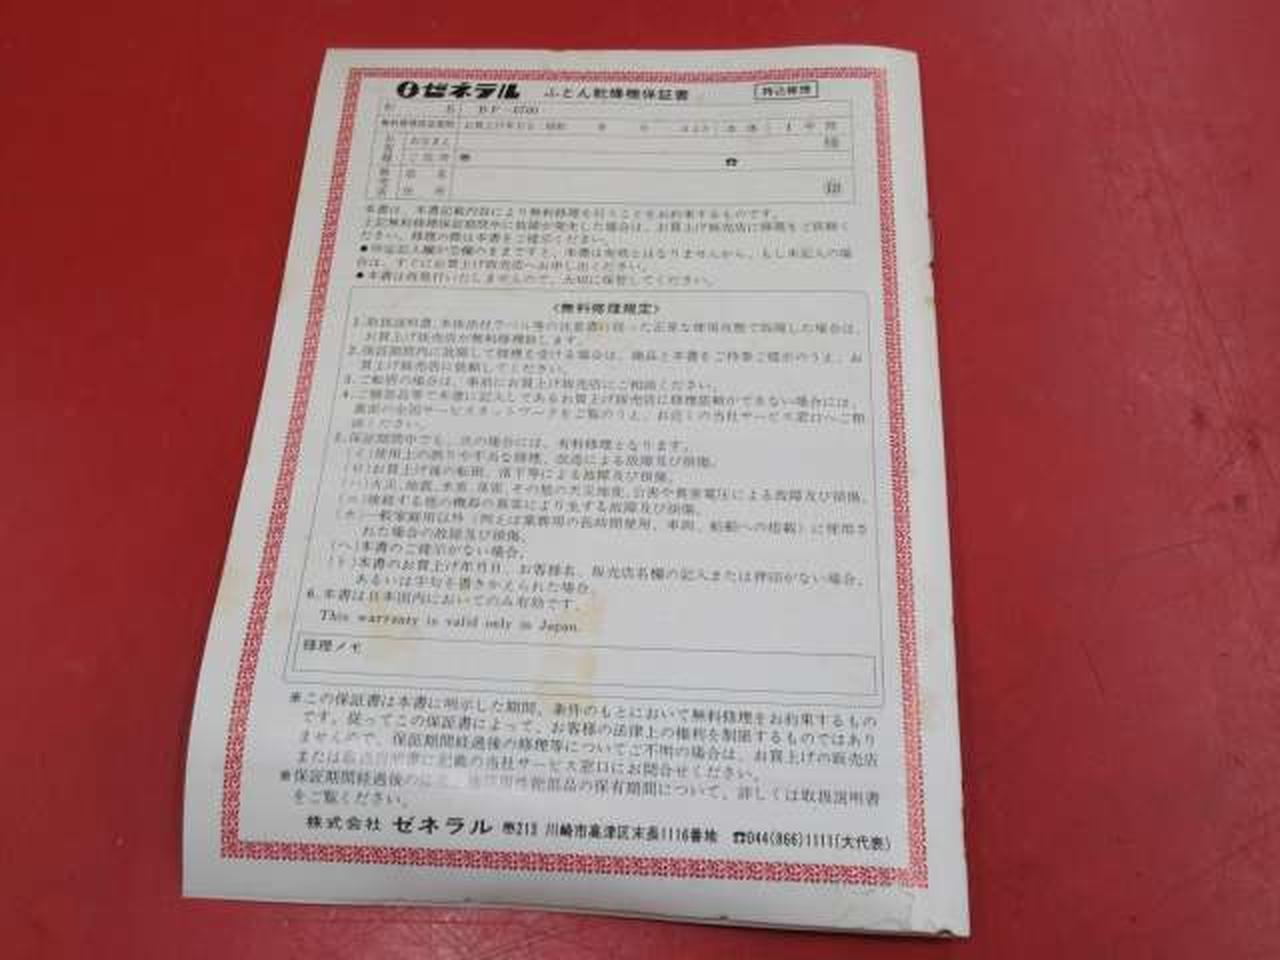 ゼネラル ふとん乾燥機保証書 持込修理
無料修理保証期間 お買上げ年月日 昭和 年 月 日より 本体 1 年間
お客様 おなまえ 様
ご住所 〒 ☎
販売店 店名
住所 印
本書は、本書記載内容により無料修理を行うことをお約束するものです。
上記無料修理保証期間中に故障が発生した場合は、お買上げ販売店に修理をご依頼く
ださい。修理の際は本書をご提示ください。
●保証記入欄が空欄のままですと、本書は有効とはなりませんから、もし未記入の場
合は、すぐにお買上げ販売店へお申し出ください。
●本書は再発行いたしませんので、大切に保管してください。
〈無料修理規定〉
1.取扱説明書、本体添付ラベル等の注意書に従った正常な使用状態で故障した場合は、
お買上げ販売店が無料修理致します。
2.保証期間内に故障して修理を受ける場合は、商品と本書をご持参ご提示のうえ、お
買上げ販売店に依頼してください。
3.ご転居の場合は、事前にお買上げ販売店にご相談ください。
4.ご贈答品等で本書に記入してあるお買上げ販売店に修理依頼ができない場合には、
裏面の全国サービスネットワークをご覧のうえ、お近くの当社サービス窓口へご相
談ください。
5.保証期間中でも、次の場合には、有料修理となります。
(イ)使用上の誤りや不当な修理、改造による故障及び損傷。
(ロ)お買上げ後の転居、落下等による故障及び損傷。
(ハ)火災、地震、水害、落雷、その他の天災地変、公害や異常電圧による故障及び損傷。
(ニ)接続する他の機器の異常により生ずる故障及び損傷。
(ホ)一般家庭用以外(例えば業務用の長時間使用、車両、船舶への搭載)に使用さ
れた場合の故障及び損傷。
(ヘ)本書のご提示がない場合。
(ト)本書のお買上げ年月日、お客様名、販売店名欄の記入または押印がない場合、
あるいは字句を書きかえられた場合。
6.本書は日本国内においてのみ有効です。
This warranty is valid only in Japan.
修理メモ
※この保証書は本書に明示した期間、条件のもとにおいて無料修理をお約束するもの
です。従ってこの保証書によって、お客様の法律上の権利を制限するものではあり
ませんので、保証期間経過後の修理等についてご不明の場合は、お買上げの販売店
または取扱説明書に記載の当社サービス窓口にお問合せください。
※保証期間経過後の 性能部品の保有期間について、詳しくは取扱説明書
をご覧ください。
株式会社 ゼネラル 〒213 川崎市高津区末長1116番地 ☎044(866)1111(大代表)